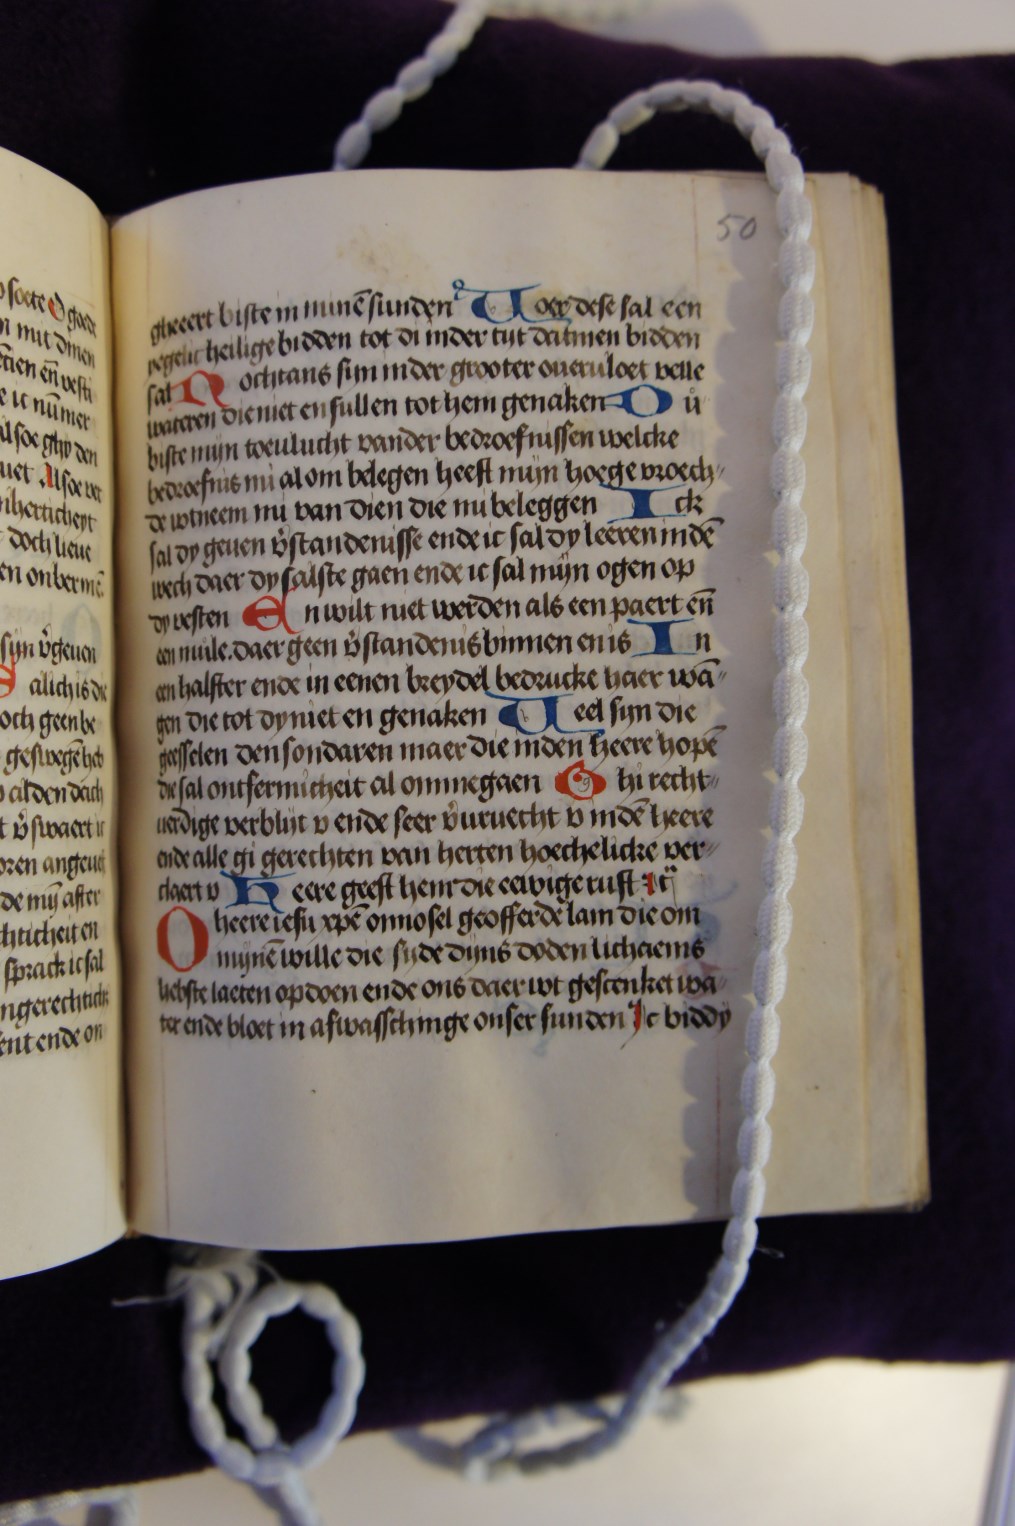 50
gheeert biste in minē sunden Voer dese sal een
yegelic heilige bidden tot di inder tijt datmen bidden
sal Nochtans sijn inder grooter overvloet velle
wateren die niet en sullen tot hem genaken Du
biste mijn toevlucht vander bedroefnissen welcke
bedroefnis mi al om belegen heeft mijn hoege vroech
de wtneem mi van dien die mi beleggen Ick
sal dy geven v̄standenisse ende ic sal dy leeren indē
wech daer dy salste gaen ende ic sal mijn ogen op
dy vesten En wilt niet werden als een paert eñ
een mule. daer geen v̄standenis binnen en is In
een halfter ende in eenen breydel bedrucke haer wā
gen die tot dy niet en genaken Veel sijn die
geesselen den sondaren maer die inden heere hopē
die sal ontfermicheit al ommegaen Ghi recht
verdige verblijt v ende seer v̄vruecht v indē heere
ende alle gi gerechten van herten hoechelicke ver
claert v Heere geeft hem die eewige rust
O heere iesu xpē onnosel geofferde lam die om
mijnē wille die syde dijns doden lichaems
liefste laeten opdoen ende ons daer wt gescenket wa
ter ende bloet in afwasschinge onser sunden Ic biddy